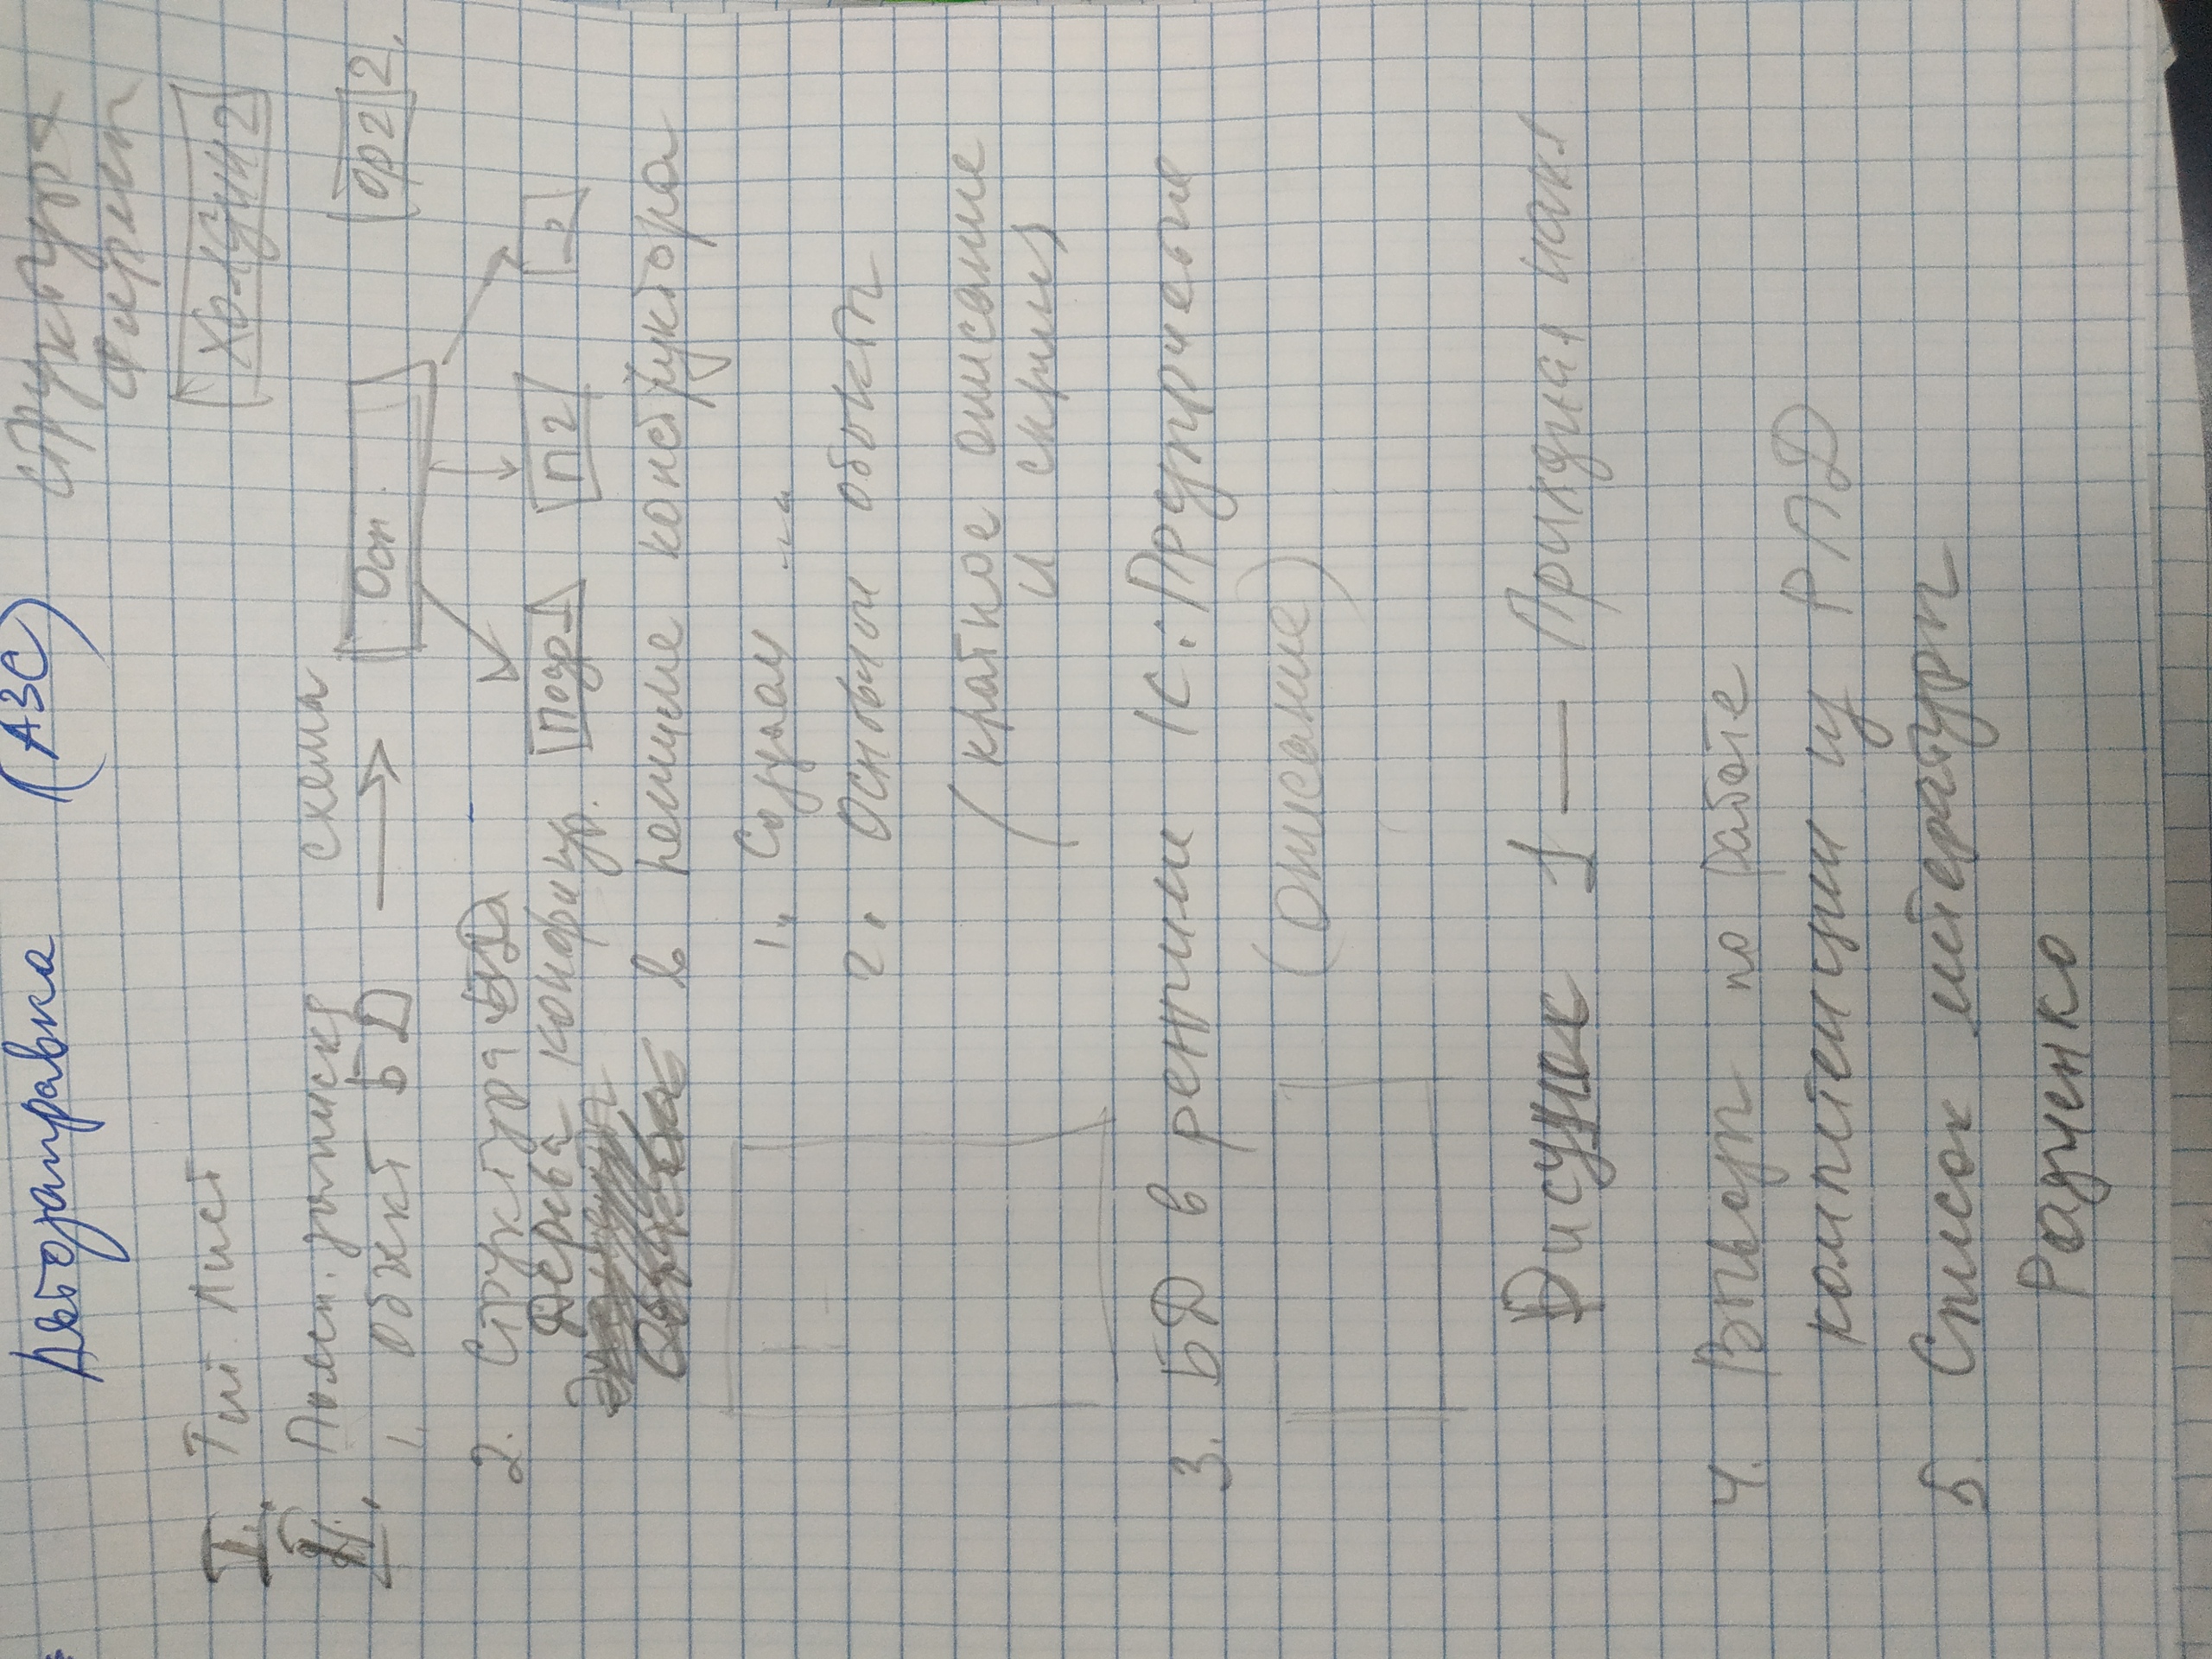 Автозаправка (АЗС)
Структура
фирмы
Холдинг
I. Тит. Лист
II. Поясн. записка
схема
1. Объект БД
Осн.
орг 2.
2. Структура БД
Дерева конфигур.
Подр 1
П 2
в режиме конструктора
1. Создаем ...
2. Основные объекты
(краткое описание
и скрины
3. БД в режиме 1С:Предприятие
(описание)
Рисунок 1 — Приходная накл
4. Выводы по работе
компетенции из РПД
5. Список литературы
Радченко